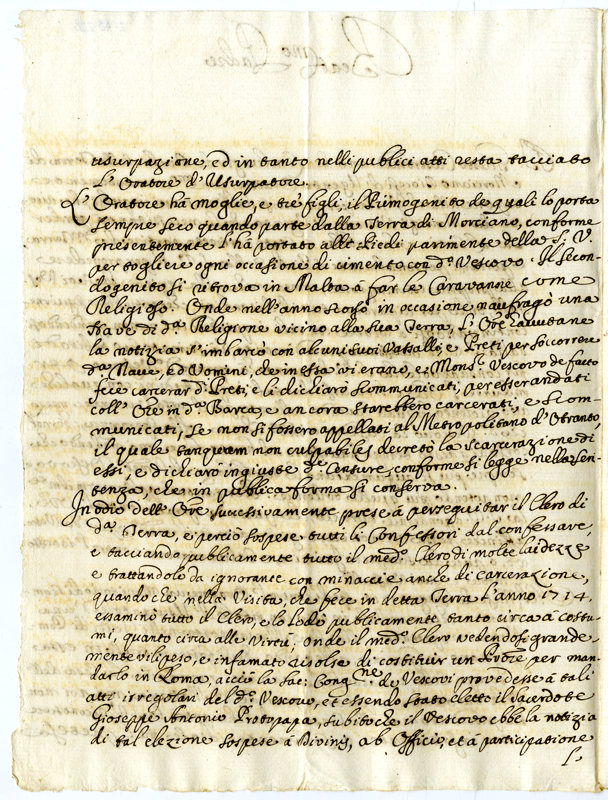 usurpazione, ed in tanto nelli publici atti resta tacciato
l'Oratore d'Usurpatore.
L'Oratore hà moglie, e trè figli, il Primogenito de quali lo porta
sempre seco quando parte dalla Terra di Morciano, conforme
presentemente l'hà portato alli Piedi parimente della S. V.
per togliere ogni occasione di cimento con d.º Vescovo. Il Secon-
dogenito si ritrova in Malta à far le Caravanne come
Religioso. Onde nell'anno scorso in occasione naufragò una
Nave di d.ª Religione vicino alla sua Terra, l'Ore havutane
la notizia s'imbarcò con alcuni suoi Vassalli, e Preti per soccorrere
d.ª Nave, ed Uomini, che in essa vi erano, e Mons.r Vescovo de facto
fece carcerar d.i Preti, e li dichiarò scommunicati, per esserandati
coll'Ore in d.ª Barca, e ancora starebbero carcerati, e scom-
municati, se non si fossero appellati al Metropolitano d'Otranto,
il quale tanquam non culpabiles decretò la scarcerazione di
essi, e dichiarò ingiuste d.e Censure, conforme si legge nella Sen-
tenza, che in publica forma si conserva.
In odio dell'Ore successivamente prese à perseguitar il Clero di
d.ª Terra, e perciò sospese tutti li Confessori dal confessare,
e tacciando publicamente tutto il med.º Clero di molte laidezze
e trattandolo da ignorante con minaccie anche di carcerazione,
quando che nella Visita, che fece in detta Terra l'anno 1714.
esaminò tutto il Clero, e lo lodò publicamente tanto circa à costu-
mi, quanto circa alle Virtù. Onde il med.º Clero vedendosi grande-
mente vilipeso, e infamato risolse di costituir un Prore per man-
darlo in Roma, acciò la Sac: Cong.ne de Vescovi provedesse à tali
atti irregolari del d.º Vescovo, et essendo stato eletto il Sacerdote
Gioseppe Antonio Protopapa, subito che il Vescovo ebbe la notizia
di tal elezione sospese à Divinis, ab Officio, et à participatione